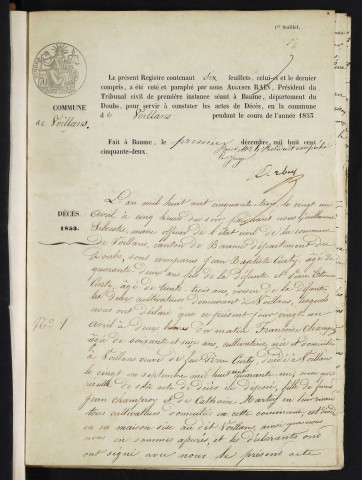 1er feuillet.
Le présent Registre contenant six feuillets, celui-ci et le dernier
compris, a été coté et paraphé par nous Auguste BAIN, Président du
Tribunal civil de première instance séant à Baume, département du
Doubs, pour servir à constater les actes de Décès, en la commune
d e Voillans pendant le cours de l'année 1853
COMMUNE
de Voillans.
Fait à Baume, le premier décembre, mil huit cent
cinquante-deux.
DÉCÈS.
1853.
L'an mil huit cent cinquante trois, le vingt un
avril à cinq heures du soir pardevant nous Guillaume
maire officier de l'état civil de la commune
de Voillans, canton de Baume département du
Doubs, sont comparus Jean Baptiste Curty, âgé de
quarante deux ans fils de la défunte et
Curty, âgé de trente trois ans, cousin de la défunte
les deux cultivateurs demeurant à Voillans, lesquels
nous ont déclaré que ce présent jour vingt un
No 1
avril à deux heures du matin Françoise Champroy
âgée de soixante et onze ans, cultivatrice, née et domiciliée
à Voillans veuve de feu Curty décédé à Voillans
le vingt en septembre mil huit cent quarante
résulte de son acte de décès ici déposé, fille de
Jean Champroy et de Catherine Martin en leur vivant
tous cultivateurs domiciliés en cette commune, est décédée
en sa maison sise au dit Voillans, ainsi que nous
nous en sommes assurés, et les déclarants ont
ont signé avec nous le présent acte